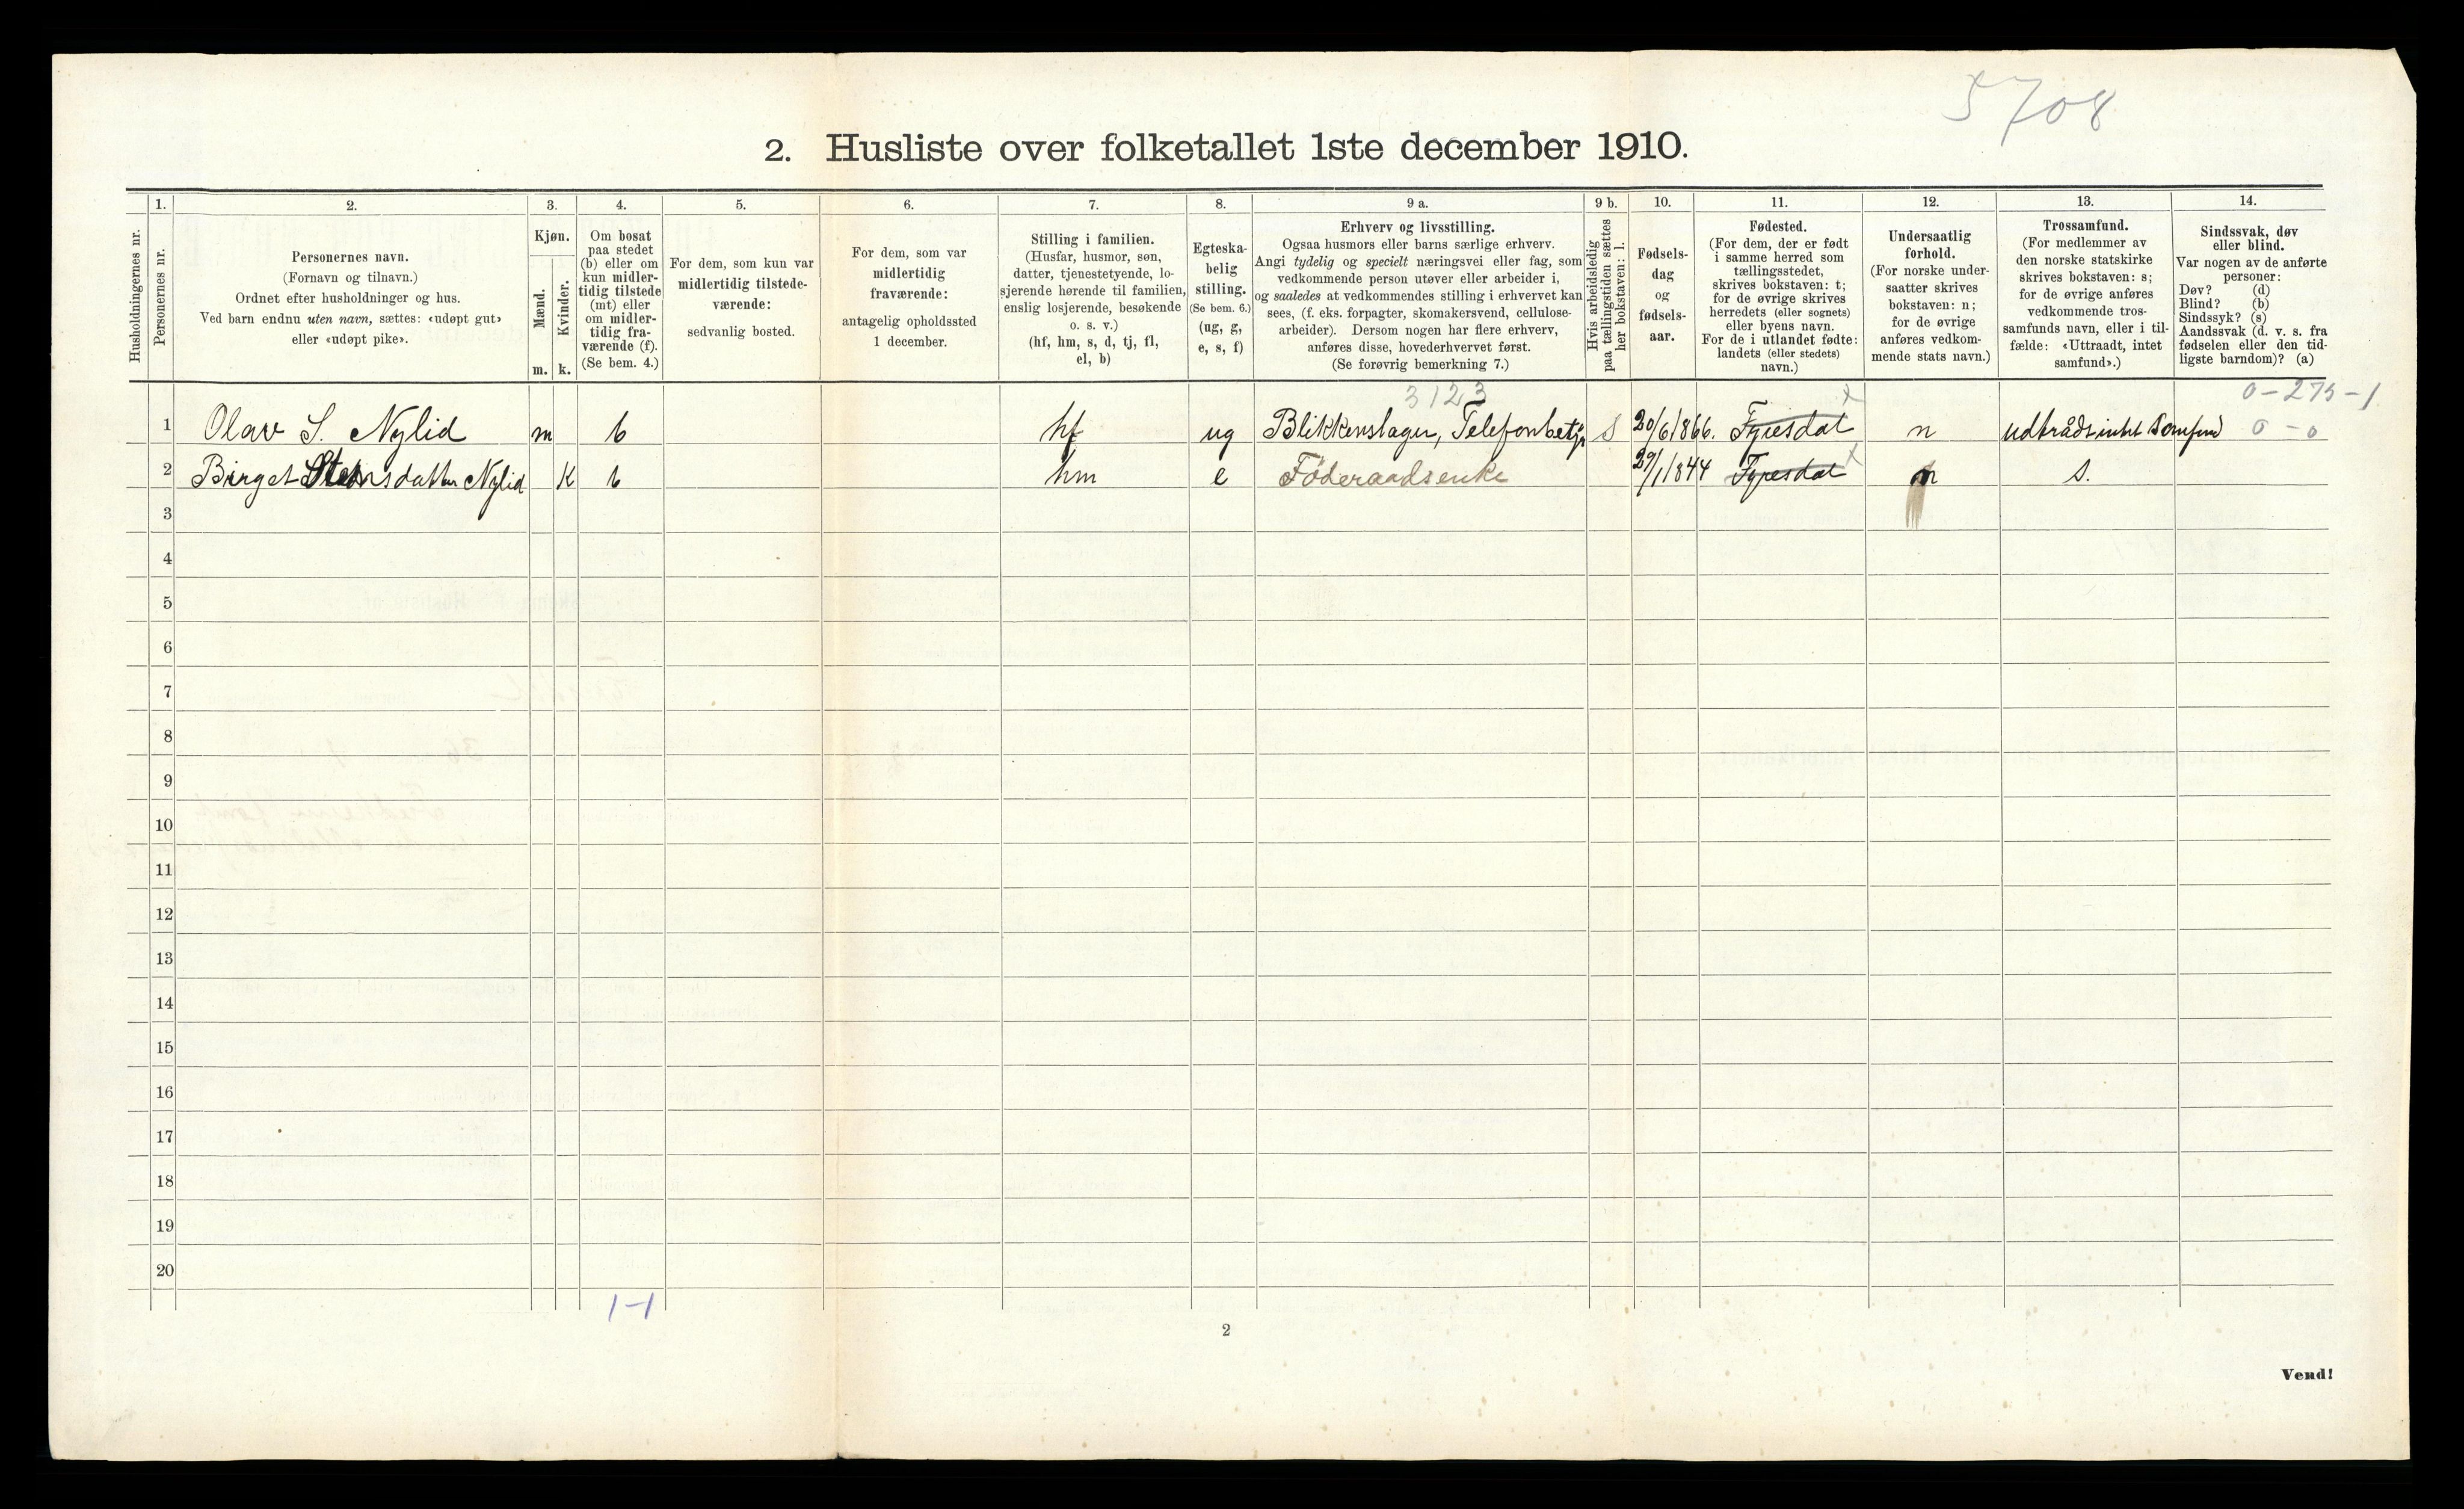 5708
2. Husliste over folketallet 1ste december 1910.
Husholdningernes nr.
1.
Personernes nr.
2.
Personernes navn.
(Fornavn og tilnavn.)
Ordnet efter husholdninger og hus.
Ved barn endnu uten navn, sættes: «udøpt gut»
eller «udøpt pike».
3.
Kjøn.
Mænd.
Kvinder.
m. k.
4.
Om bosat
paa stedet
(b) eller om
kun midler-
tidig tilstede
(mt) eller
om midler-
tidig fra-
værende (f).
(Se bem. 4.)
5.
For dem, som kun var
midlertidig tilstede-
værende:
sedvanlig bosted.
6.
For dem, som var
midlertidig
fraværende:
antagelig opholdssted
1 december.
7.
Stilling i familien.
(Husfar, husmor, søn,
datter, tjenestetyende, lo-
sjerende hørende til familien,
enslig losjerende, besøkende
o. s. v.)
(hf, hm, s, d, tj, fl,
el, b)
8.
Egteska-
belig
stilling.
(Se bem. 6.)
(ug, g,
e, s, f)
9 a.
Erhverv og livsstilling.
Ogsaa husmors eller barns særlige erhverv.
Angi tydelig og specielt næringsvei eller fag, som
vedkommende person utøver eller arbeider i,
og saaledes at vedkommendes stilling i erhvervet kan
sees, (f. eks. forpagter, skomakersvend, cellulose-
arbeider). Dersom nogen har flere erhverv,
anføres disse, hovederhvervet først.
(Se forøvrig bemerkning 7.)
9 b.
Hvis arbeidsledig
paa tællingstiden sættes
her bokstaven: l.
10.
Fødsels-
dag
og
fødsels-
aar.
11.
Fødested.
(For dem, der er født
i samme herred som
tællingsstedet,
skrives bokstaven: t;
for de øvrige skrives
herredets (eller sognets)
eller byens navn.
For de i utlandet fødte:
landets (eller stedets)
navn.)
12.
Undersaatlig
forhold.
(For norske under-
saatter skrives
bokstaven: n;
for de øvrige
anføres vedkom-
mende stats navn.)
13.
Trossamfund.
(For medlemmer av
den norske statskirke
skrives bokstaven: s;
for de øvrige anføres
vedkommende tros-
samfunds navn, eller i til-
fælde: «Uttraadt, intet
samfund».)
14.
Sindssvak, døv
eller blind.
Var nogen av de anførte
personer:
Døv? (d)
Blind? (b)
Sindssyk? (s)
Aandssvak (d. v. s. fra
fødselen eller den tid-
ligste barndom)? (a)
3123 0-275-1
1 Olav S. Nylid m b hf ug Blikkenslager, Telefonbetj. S 20/6 1866. Fyresdal n udtrådt intet Samfund 0-0
2 Birget Stensdatter Nylid K b hm e Föderaadsenke 29/1 1844 Fyresdal n S.
3
4
5
6
7
8
9
10
11
12
13
14
15
16
17
18
19
20
1-1
2
Vend!